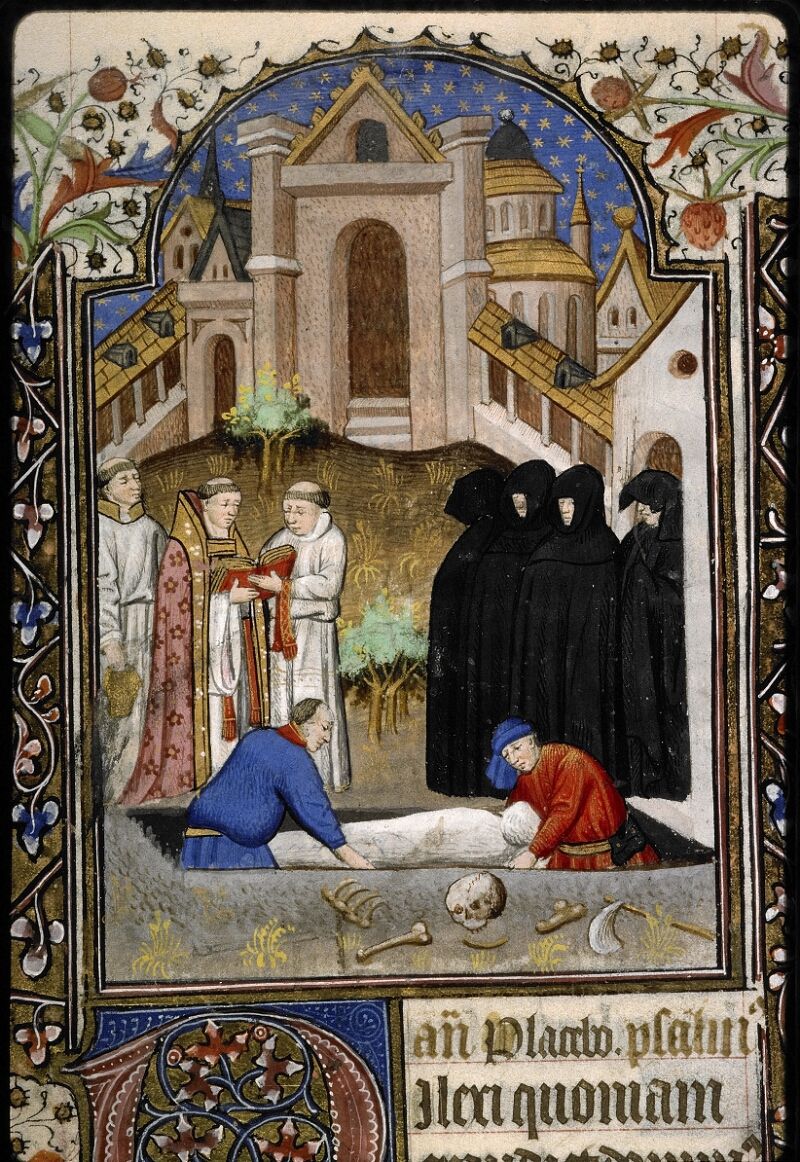 an̄ Placebo. psalmꝰ
Dilexi quoniam